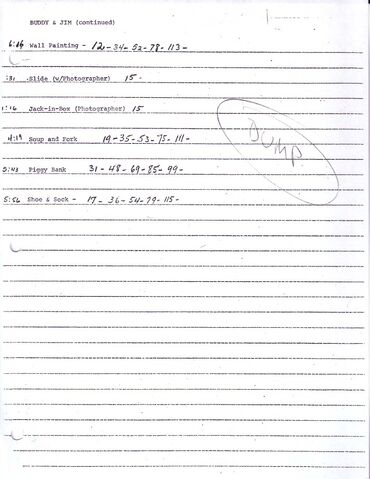 BUDDY & JIM (continued)
Wall Painting - 12-34-52-78-113-
:31 Slide (w/Photographer) 15-
1:16 Jack-in-Box (Photographer) 15
4:19 Soup and Fork 19-35-53-75-111-
DUMP
5:43 Piggy Bank 31-48-69-85-99-
5:56 Shoe & Sock - 17-36-54-79-115-